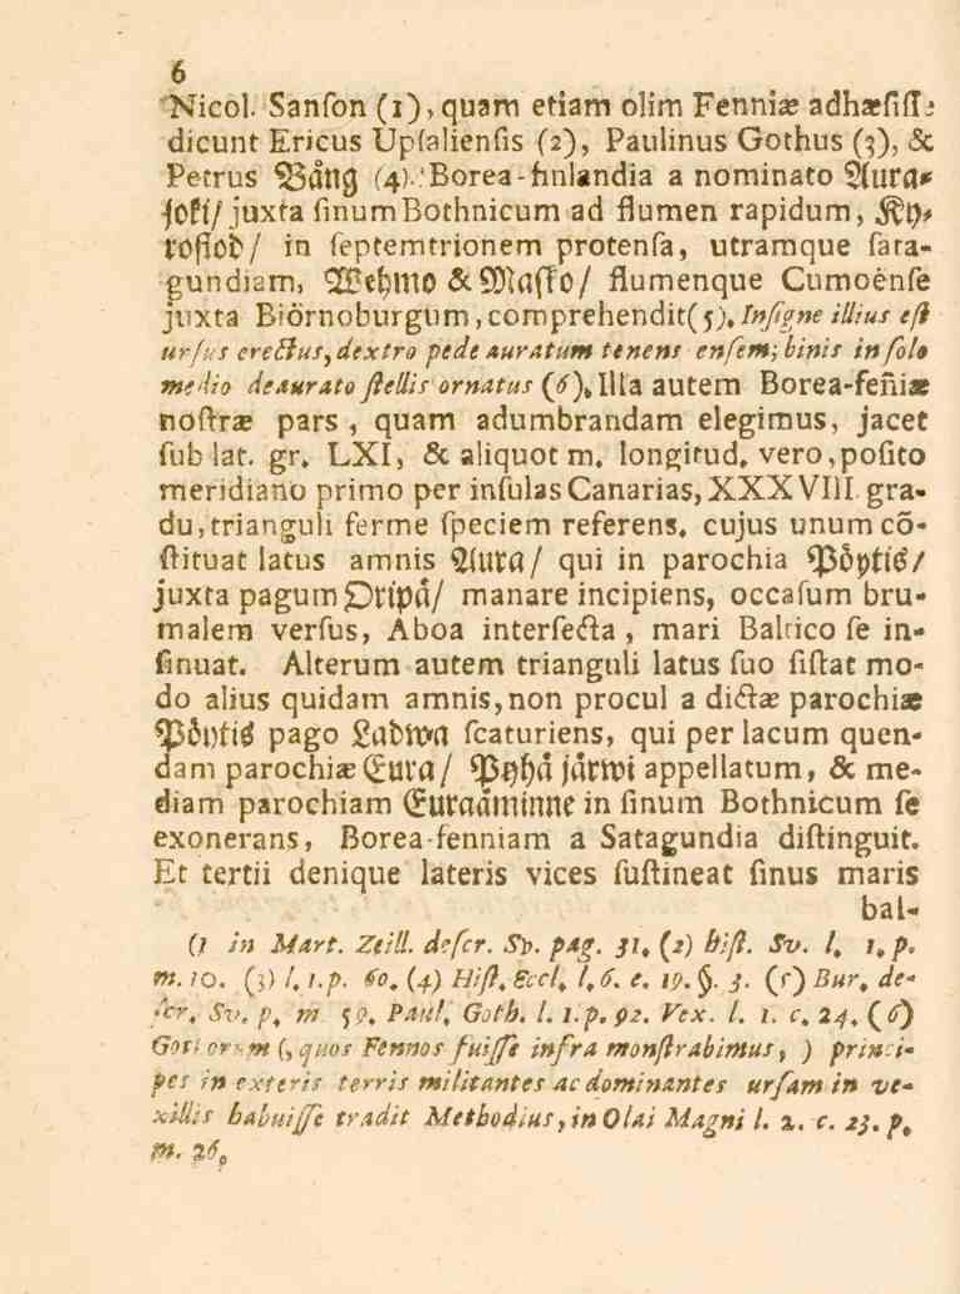 6
Nicol. Sanſon (1), quam etiam olim Fenniæ adhæſiſſe
dicunt Ericus Upſalienſis (2), Paulinus Gothus (3), &
Petrus Bång (4). Borea-finlandia a nominato Aura-
joki/ juxta ſinum Bothnicum ad flumen rapidum, Ky-
roſiod/ in ſeptemtrionem protenſa, utramque ſata-
gundiam, Wehmo & Maſko/ flumenque Cumoënſe
juxta Biörnoburgum, comprehendit(5). Inſigne illius eſt
urſus erectus, dextro pede auratum tenens enſem; binis in ſolo
medio deaurato ſtellis ornatus (6). Illa autem Borea-feñiæ
noſtræ pars, quam adumbrandam elegimus, jacet
ſub lat. gr. LXI, & aliquot m. longitud. vero, poſito
meridiano primo per inſulas Canarias, XXXVIII gra-
du, trianguli ferme ſpeciem referens. cujus unum cõ-
ſtituat latus amnis Aura/ qui in parochia Pöytis/
juxta pagum Oripå/ manare incipiens, occaſum bru-
malem verſus, Aboa interſecta, mari Baltico ſe in-
ſinuat. Alterum autem trianguli latus ſuo ſiſtat mo-
do alius quidam amnis, non procul a dictæ parochiæ
Pöytis pago Ladwa ſcaturiens, qui per lacum quen-
dam parochiæ Eura/ Pyhå jårwi appellatum, & me-
diam parochiam Euraåminne in ſinum Bothnicum ſe
exonerans, Borea-fenniam a Satagundia diſtinguit.
Et tertii denique lateris vices ſuſtineat ſinus maris
bal-
(1 in Mart. Zeill. deſcr. Sv. pag. 31. (2) hiſt. Sv. l. 1. p.
m. 10. (3) l. 1. p. 60. (4) Hiſt. Eccl. l. 6. c. 19. §. 3. (5) Bur. de-
ſcr. Sv. p. m 59. Paul. Goth. l. 1. p. 92. Vex. l. 1. c. 24. (6)
Gothorum (, quos Fennos fuiſſe infra monſtrabimus, ) princi-
pes in exteris terris militantes ac dominantes urſam in ve-
xillis habuiſſe tradit Methodius, in Olai Magni l. 2. c. 23. p.
m. 26.